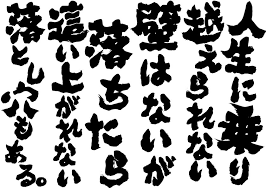 人生に乗り
越えられない
壁はないが
落ちたら
這い上がれない
落とし穴もある。